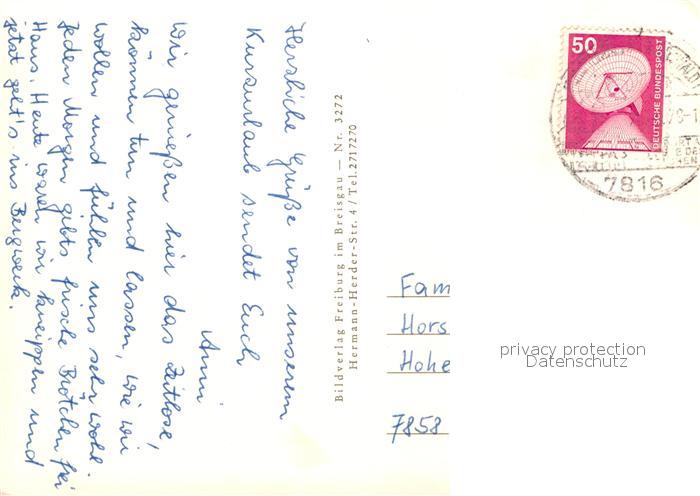 Herzliche Grüße von unserem
Kurzurlaub sendet Euch
Anni
Wir genießen hier das Zeitlose,
können tun und lassen, wie wir
wollen und fühlen uns sehr wohl.
Jeden Morgen gibts frische Brötchen frei
Haus. Heute waren wir kneippen und
jetzt geht's ins Bergwerk.
Bildverlag Freiburg im Breisgau — Nr. 3272
Hermann-Herder-Str. 4 / Tel. 2717270
50
DEUTSCHE BUNDESPOST
7816
Fam
Hors
Hohe
7858
privacy protection
Datenschutz